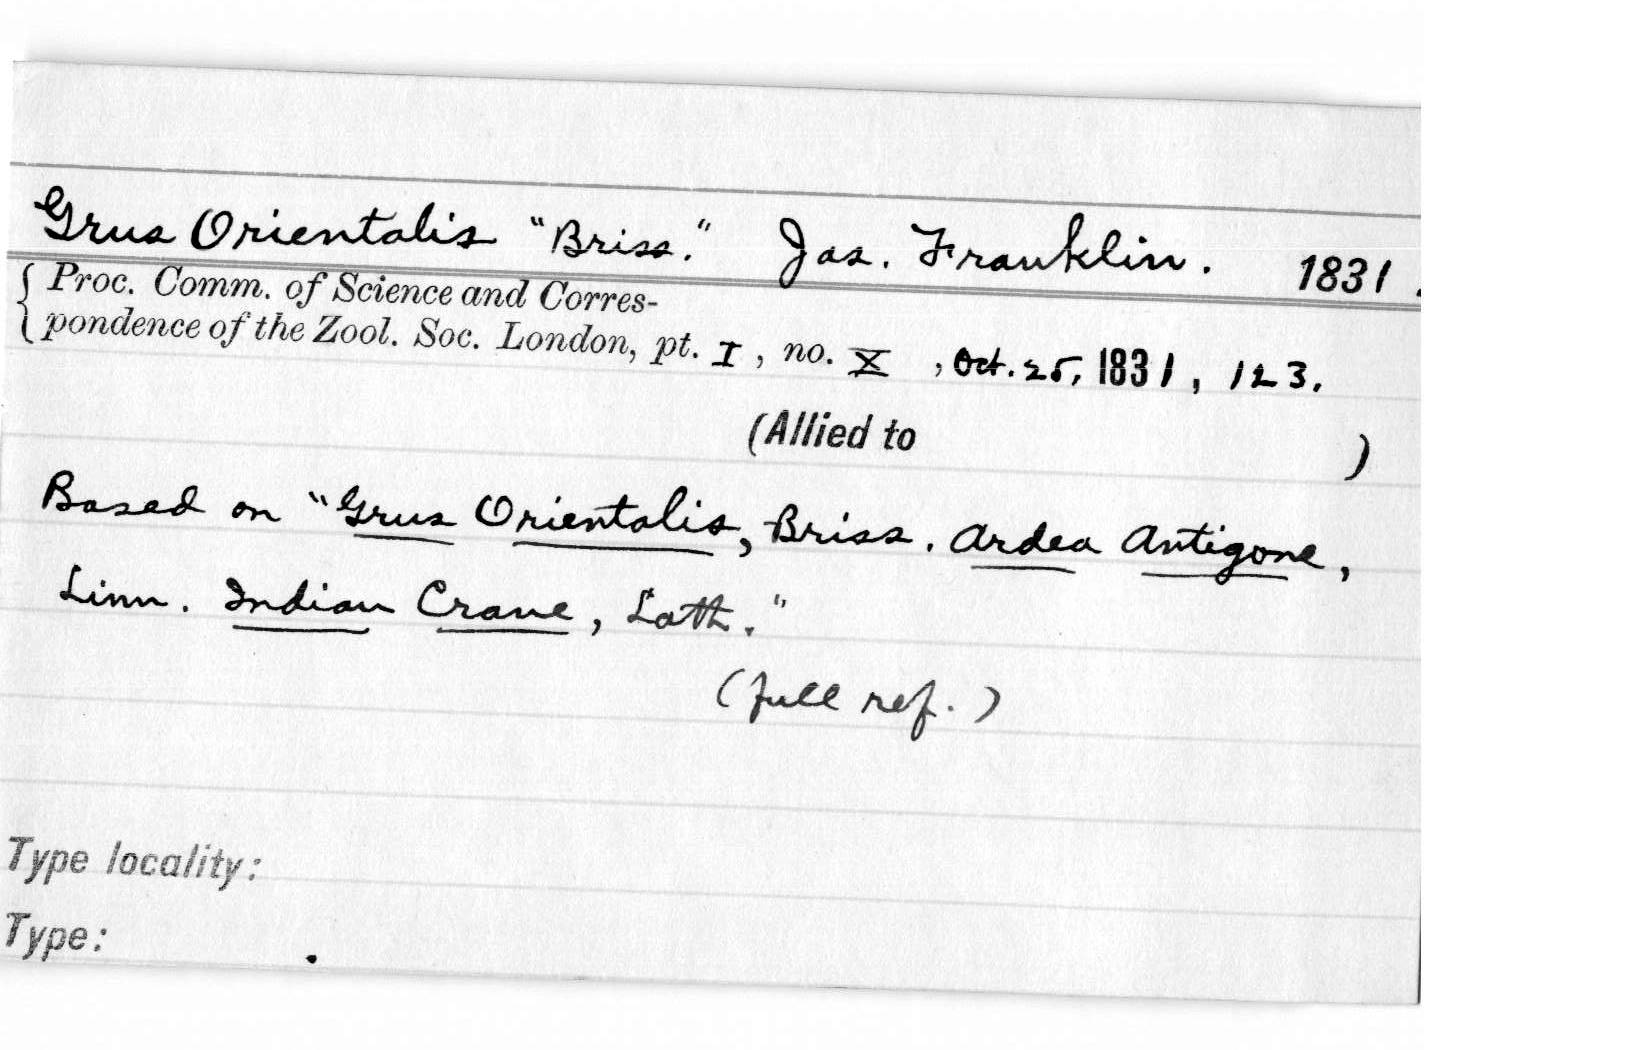 Grus Orientalis "Briss." Jas. Franklin. 1831.
Proc. Comm. of Science and Corres-
pondence of the Zool. Soc. London, pt. I, no. X, Oct. 25, 1831, 123.
(Allied to )
Based on "Grus Orientalis, Briss. Ardea Antigone,
Linn. Indian Crane, Lath."
(full ref.)
Type locality:
Type: